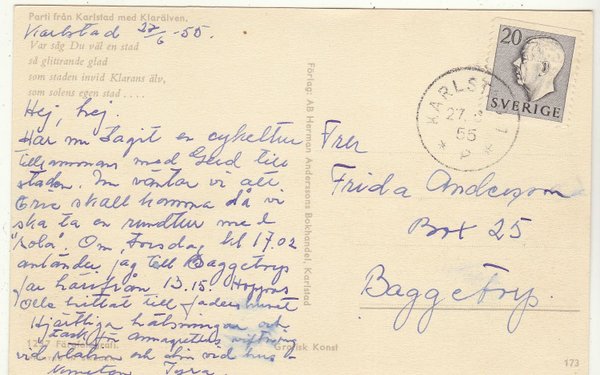 Parti från Karlstad med Klarälven.
Karlstad 27/6 -55.
Var såg Du väl en stad
så glittrande glad
som staden invid Klarans älv,
som solens egen stad . . . .
Hej, hej.
Har nu tagit en cykeltur
tillsammans med Gerd till
staden. Nu väntar vi att
skall komma då vi
ska ta en rundtur med
"Kola". Om Torsdag kl 17.02
anländer jag till Baggetorp
far härifrån 13.15. Hoppas
hittat till
Hjärtliga hälsningar och
tack för
vid och
Förlag: AB Herman Anderssons Bokhandel, Karlstad
1227
Grafisk Konst
20
SVERIGE
KARLSTAD 1
27. 6
55
Fru
Frida Andersson
Box 25
Baggetorp.
173